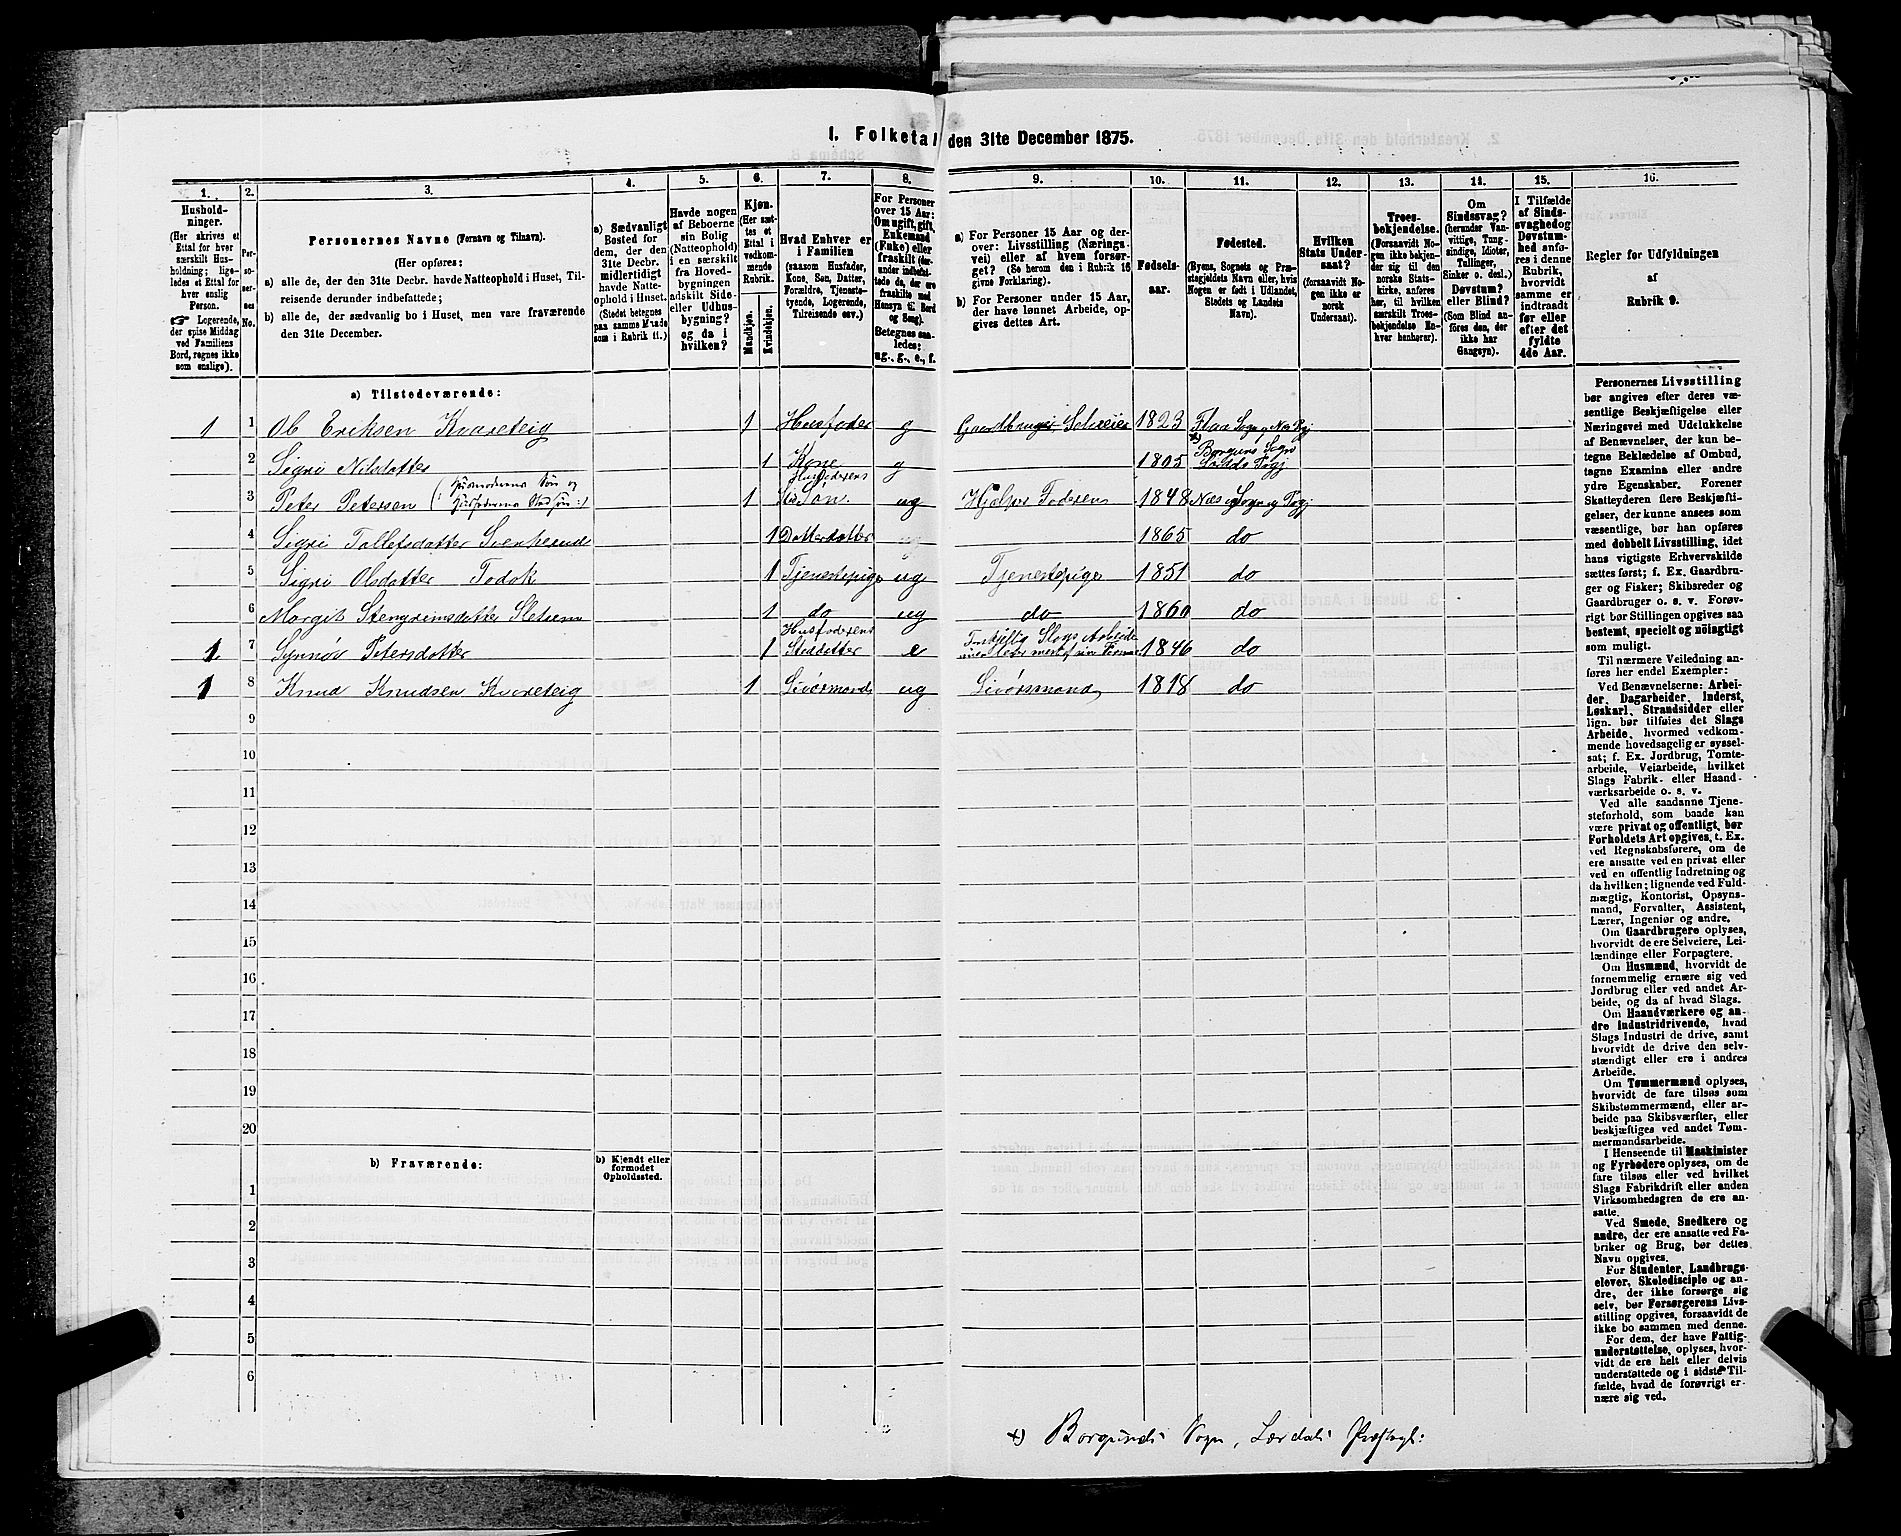 1. Folketal den 31te December 1875.
1.
2.
3.
4.
5.
6.
7.
8.
9.
10.
11.
12.
13.
14.
15.
16.
Hushold-
ninger.
(Her skrives et
Ettal for hver
særskilt Hus-
holdning; lige-
ledes et Ettal for
hver enslig
Person.
☞ Logerende,
der spise Middag
ved Familiens
Bord, regnes ikke
som enslige).
Per-
so-
ner-
nes
No.
Personernes Navne (Fornavn og Tilnavn).
(Her opføres:
a) alle de, der den 31te Decbr. havde Natteophold i Huset, Til-
reisende derunder indbefattede;
b) alle de, der sædvanlig bo i Huset, men vare fraværende
den 31te December.
a) Sædvanligt
Bosted for
dem, der den
31te Decbr.
midlertidigt
havde Natte-
ophold i Huset.
(Stedet betegnes
paa samme Maade
som i Rubrik 11.)
Havde nogen
af Beboerne
sin Bolig
(Natteophold)
i en særskilt
fra Hoved-
bygningen
adskilt Side-
eller Udhus-
bygning?
og da i
hvilken?
Kjøn.
(Her sæt-
tes et
Ettal i
vedkom-
mende
Rubrik.
Mandkjøn.
Kvindekjøn.
Hvad Enhver er
i Familien
(saasom Husfader,
Kone, Søn, Datter,
Forældre, Tjeneste-
tyende, Logerende,
Tilreisende osv.)
For Personer
over 15 Aar:
Om ugift, gift,
Enkemand
(Enke) eller
fraskilt (der-
under indbefat-
tede de, der ere
fraskilte med
Hensyn til Bord
og Seng).
Betegnes saa-
ledes:
ug., g., e., f.
a) For Personer 15 Aar og der-
over: Livsstilling (Nærings-
vei) eller af hvem forsør-
get? (Se herom den i Rubrik 16
givne Forklaring).
b) For Personer under 15 Aar,
der have lønnet Arbeide, op-
gives dettes Art.
Fødsels-
aar.
Fødested.
(Byens, Sognets og Præ-
stegjeldets Navn eller, hvis
Nogen er født i Udlandet,
Stedets og Landets
Navn).
Hvilken
Stats Under-
saat?
(forsaavidt No-
gen ikke er
norsk
Undersaat).
Troes-
bekjendelse.
(Forsaavidt No-
gen ikke bekjen-
der sig til den
norske Stats-
kirke, anføres
her, til hvilken
særskilt Troes-
bekjendelse En-
hver henhører).
Om
Sindssvag?
(herunder Van-
vittige, Tung-
sindige, Idioter,
Tullinger,
Sinker o. desl.)
Døvstum?
eller Blind?
(Som Blind an-
føres den, der
ikke har
Gangsyn).
I Tilfælde
af Sinds-
svaghed og
Døvstum-
hed anfø-
res i denne
Rubrik,
hvorvidt
samme er
indtraadt
før eller
efter det
fyldte
4de Aar.
Regler for Udfyldningen
af
Rubrik 9.
a) Tilstedeværende:
1 1 Ole Eriksen Kvareteig 1 Husfader g Gaardbruger Selveier 1823 Flaa Sogn Næs Pgj
2 Sigri Nilsdatter 1 Kone g 1805 x) Borgunds Sogn Lærdals Pgj
3 Peter Petersen (Husmoderens Søn og Husfaderens Stedsøn:) 1 Husfaderens Stedsøn ug Hjelper Faderen 1848 Næs Sogn og Pgj
4 Sigri Tollefsdatter Svenkerud 1 Datterdatter ug 1865 do
5 Sigri Olsdatter Todok 1 Tjenestepige ug Tjenestepige 1851 do
6 Margit Stengrimsdatter 1 do ug do 1860 do
1 7 Synnøv Petersdatter 1 Husfaderens Steddatter e Forskjellig Slags Arbeide 1846 do
1 8 Knud Knudsen Kvareteig 1 Livørsmand ug Livørsmand 1818 do
9
10
11
12
13
14
15
16
17
18
19
20
b) Fraværende:
b) Kjendt eller
formodet
Opholdssted.
1
2
3
4
5
6
Personernes Livsstilling
bør angives efter deres væ-
sentlige Beskjæftigelse eller
Næringsvei med Udelukkelse
af Benævnelser, der kun be-
tegne Beklædelse af Ombud,
tagne Examina eller andre
ydre Egenskaber. Forener
Skatteyderen flere Beskjæfti-
gelser, der kunne ansees som
væsentlige, bør han opføres
med dobbelt Livsstilling, idet
hans vigtigste Erhvervskilde
sættes først; f. Ex. Gaardbru-
ger og Fisker; Skibsreder og
Gaardbruger o. s. v. Forøv-
rigt bør Stillingen opgives saa
bestemt, specielt og nöiagtigt
som muligt.
Til nærmere Veiledning an-
føres her endel Exempler:
Ved Benævnelserne: Arbei-
der, Dagarbeider, Inderst,
Løskarl, Strandsidder eller
lign. bør tilføies det Slags
Arbeide, hvormed vedkom-
mende hovedsagelig er syssel-
sat; f. Ex. Jordbrug, Tomte-
arbeide, Veiarbeide, hvilket
Slags Fabrik- eller Haand-
værksarbeide o. s. v.
Ved alle saadanne Tjene-
steforhold, som baade kan
være privat og offentligt, bør
Forholdets Art opgives, t. Ex.
ved Regnskabsførere, om de
ere ansatte ved en privat eller
ved en offentlig Indretning og
da hvilken; lignende ved Fuld-
mægtig, Kontorist, Opsyns-
mand, Forvalter, Assistent,
Lærer, Ingeniør og andre.
Om Gaardbrugere oplyses,
hvorvidt de ere Selveiere, Lei-
lændinge eller Forpagtere.
Om Husmænd, hvorvidt de
fornemmelig ernære sig ved
Jordbrug eller ved andet Ar-
beide, og da af hvad Slags.
Om Haandværkere og an-
dre Industridrivende, hvad
Slags Industri de drive, samt
hvorvidt de drive den selv-
stændigt eller ere i andres
Arbeide.
Om Tømmermænd oplyses,
hvorvidt de fare tilsøs som
Skibstømmermænd, eller ar-
beide paa Skibsværfter, eller
beskjæftiges ved andet Tøm-
mermandsarbeide.
I Henseende til Maskinister
og Fyrbødere oplyses, om de
fare tilsøs eller ved hvilket
Slags Fabrikdrift eller anden
Virksomhedsgren de ere an-
satte.
Ved Smede, Snedkere og
andre, der ere ansatte ved Fa-
briker og Brug, bør dettes
Navn opgives.
For Studenter, Landbrugs-
elever, Skoledisciple og an-
dre, der ikke forsørge sig
selv, bør Forsørgerens Livs-
stilling opgives, forsaavidt de
ikke bo sammen med denne.
For dem, der have Fattig-
understøttelse, oplyses, hvor-
vidt de ere helt eller delvis
understøttede og i sidste Til-
fælde, hvad de forøvrigt er-
nære sig ved.
x) Borgunds Sogn, Lærdals Præstegj: